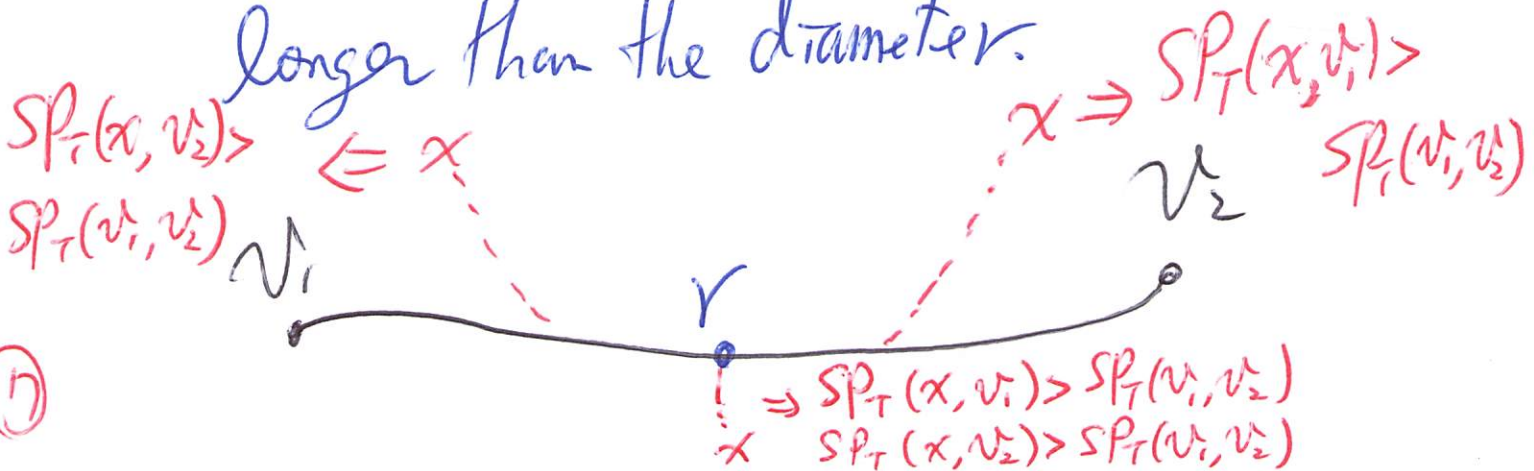 longer than the diameter.
SP_T(x, v_2) > SP_T(v_1, v_2) ⇐ x
x ⇒ SP_T(x, v_1) > SP_T(v_1, v_2)
v_1
r
v_2
⇒ SP_T(x, v_1) > SP_T(v_1, v_2)
x SP_T(x, v_2) > SP_T(v_1, v_2)